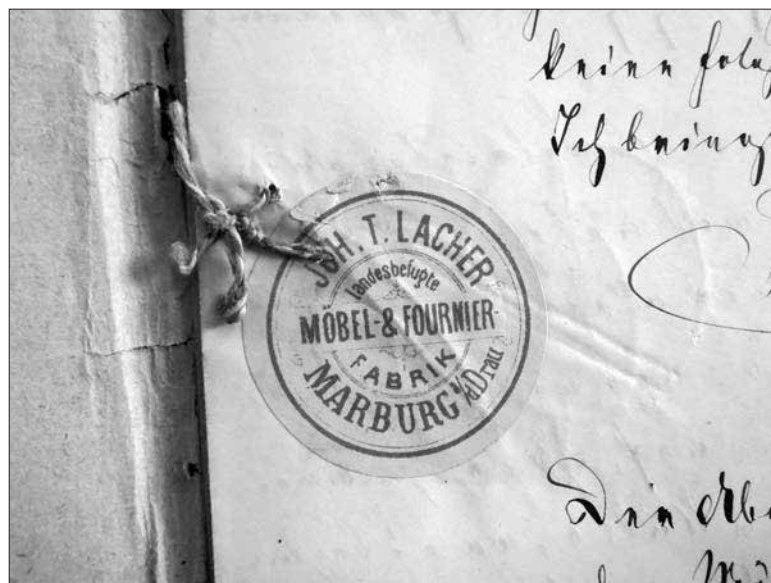 keine
Ich
JOH. T. LACHER
landesbefugte
MÖBEL-& FOURNIER-
FABRIK
MARBURG a/d Drau